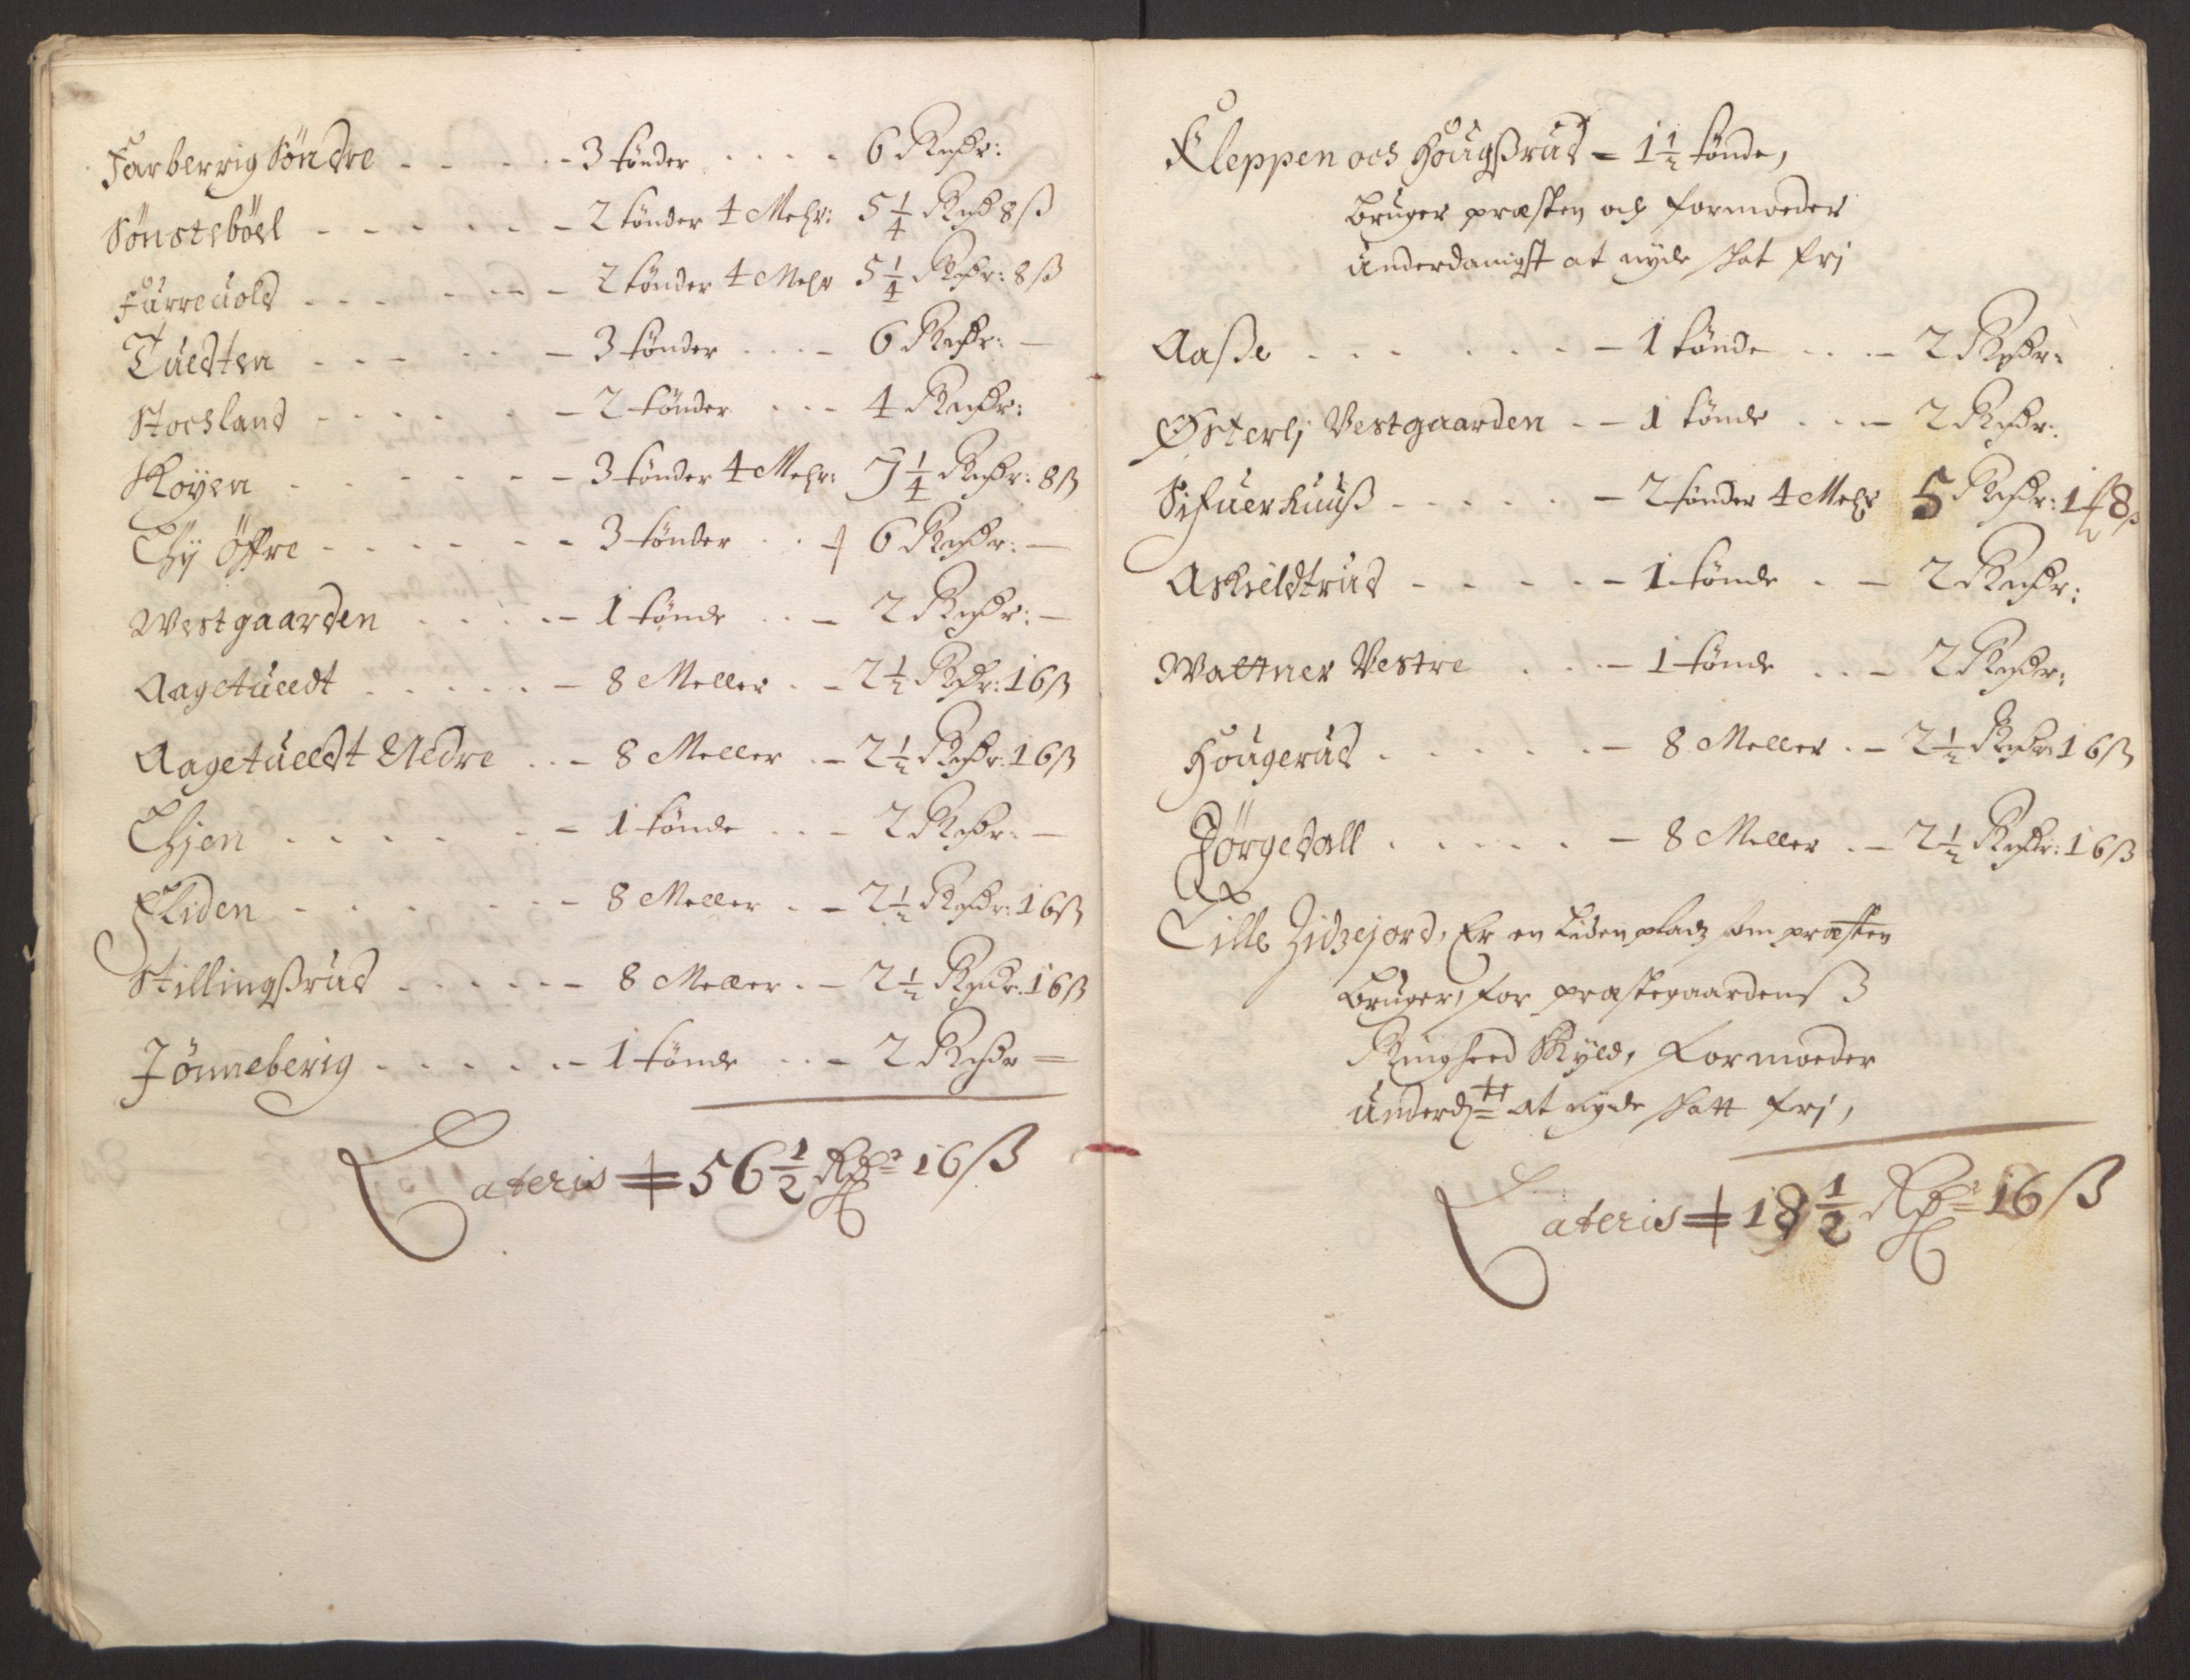 Farberrig Söndre - - - - - 3 tönder . . . . 6 Rixdr:
Sönsteböel - - - - - - 2 tönder 4 Mehr: 5 1/4 Rixd 8 ß
Furreuold - - - - - - - 2 tönder 4 Mehr 5 1/4 Rixdr: 8 ß
Tuedten - - - - - - 3 tönder . . . - 6 Rixdr: -
Stochland - - - - - - 2 tönder . . - 4 Rixdr:
Skoyen - - - - - - - 3 tönder 4 Mehr: 7 1/4 Rixdr: 8 ß
Lhÿ Öffre - - - - - - 3 tönder . . 6 Rixdr: -
Westgaarden . . . . - 1 tönde . . - 2 Rixdr: -
Aagetuedt . . . . . - 8 Meller . - 2 1/2 Rixdr: 16 ß
Aagetuedt Nedre . . - 8 Meller . - 2 1/2 Rixdr: 16 ß
Lhjen . . . . . . - 1 tönde . . - 2 Rixdr: -
Eliden - - - - - - - 8 Meller . - 2 1/2 Rixdr: 16 ß
Stillingßrud - - - - - - 8 Meller . - 2 1/2 Rixdr: 16 ß
Jönneberig . . . . . - 1 tönde . . - 2 Rixdr =
Lateris = 56 1/2 Rdr 16 ß
Kleppen och Hougßrud - 1 1/2 tönde,
bruger præsten och formoeder
underdanigst at nyde skat frj
Aaße . . . . . . - 1 tönde . . . - 2 Rixdr:
Østerlj Vestgaarden - - 1 tönde . . - 2 Rixdr:
Sifuerhuuß - - - - - - 2 tönder 4 Mehr 5 Rixdr: 1 ȹ 8 ß
Askieldtrud - - - - - 1 tönde . - 2 Rixdr:
Wattner Vestre . . . - 1 tönde . . - 2 Rixdr:
Hougerud . . . . . - 8 Meller . - 2 1/2 Rixdr: 16 ß
Jörgedall . . . . . - 8 Meller . - 2 1/2 Rixdr: 16 ß
Lille Zidzejord, Er en Liden pladz som præsten
bruger, for præstegaardenß
Ringheed Skÿld, Formoeder
underd:st at nyde skatt frj,
Lateris = 18 1/2 Rdr 16 ß